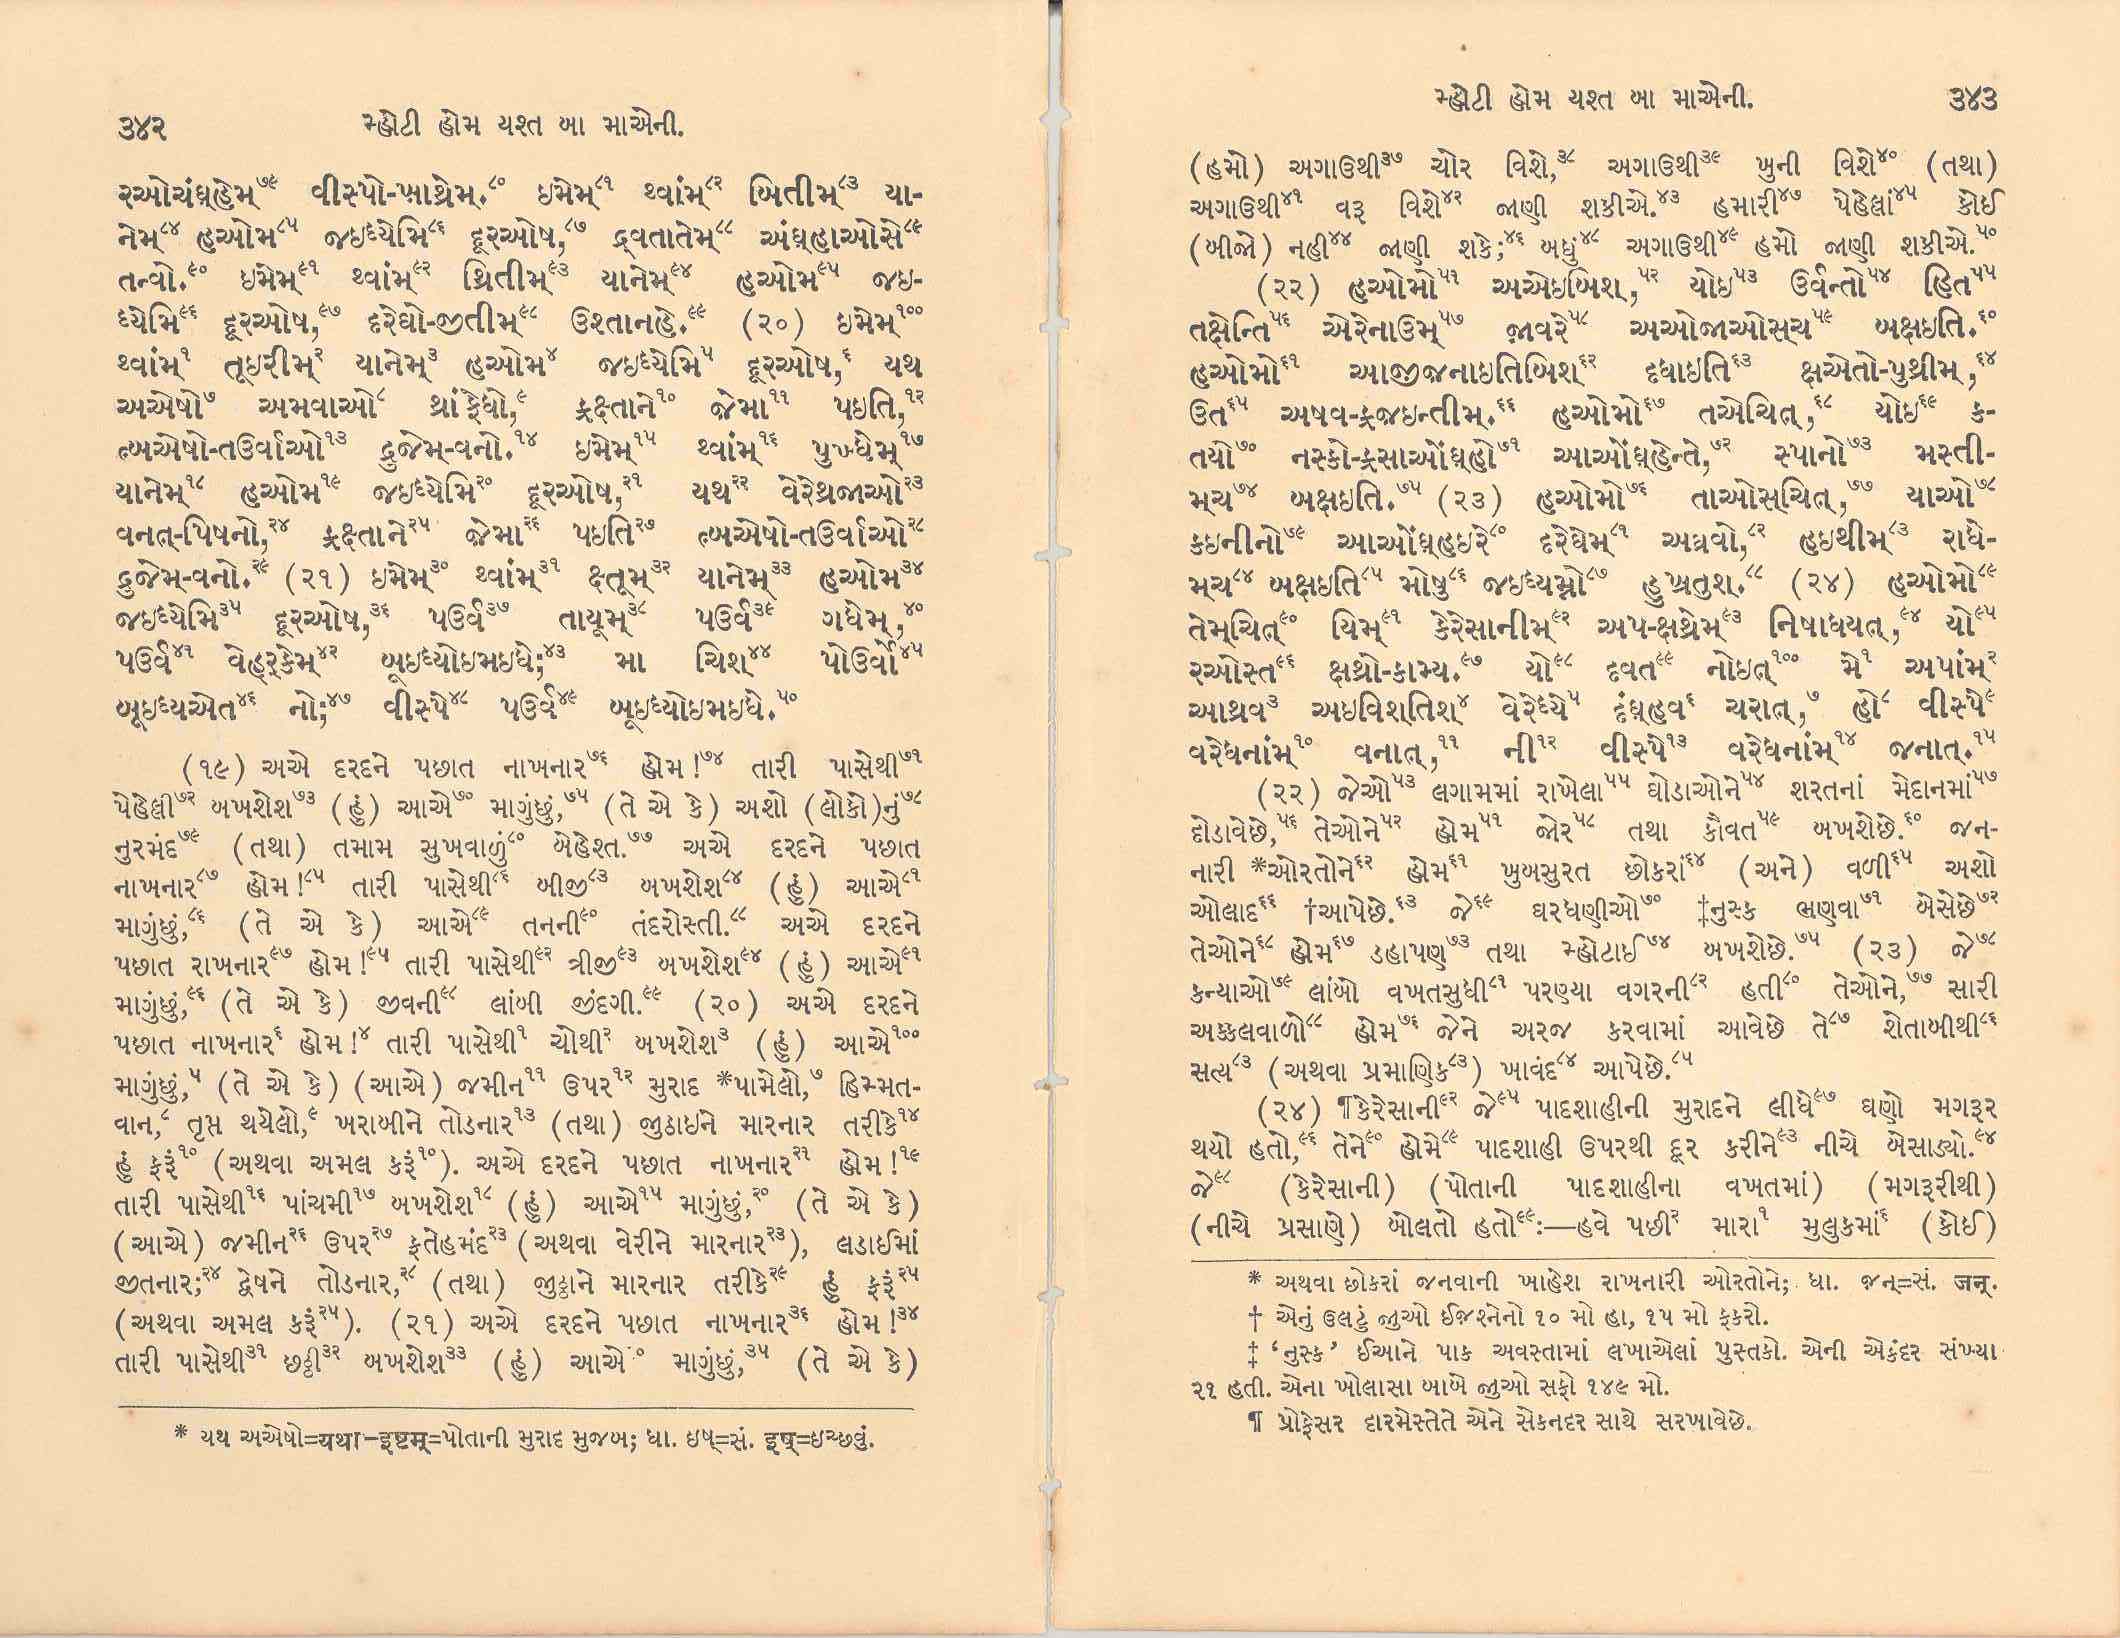 ૩૪૨ મ્હોટી હોમ યશ્ત બા માએની.
રઓચંઘ્હેમ્૭૯ વીસ્પો-ખાથ્રેમ્.૮૦ ઇમેમ્૮૧ થ્વાંમ્૮૨ બિતીમ્૮૩ યા-
નેમ્૮૪ હઓમ૮૫ જઇધ્યેમિ૮૬ દૂરઓષ,૮૭ દ્ર્વતાતેમ્૮૮ અંઘ્હાઓસે૮૯
તન્વો.૯૦ ઇમેમ્૯૧ થ્વાંમ્૯૨ થ્રિતીમ્૯૩ યાનેમ્૯૪ હઓમ૯૫ જઇ-
ધ્યેમિ૯૬ દૂરઓષ,૯૭ દરેઘો-જીતીમ્૯૮ ઉશ્તાનહે.૯૯ (૨૦) ઇમેમ્૧૦૦
થ્વાંમ્૧ તૂઇરીમ્૨ યાનેમ્૩ હઓમ૪ જઇધ્યેમિ૫ દૂરઓષ,૬ યથ
અએષો૭ અમવાઓ૮ થ્રાંફેધો,૯ ફ્રક્ષ્તાને૧૦ જ઼ેમા૧૧ પઇતિ,૧૨
ત્બએષો-તઉર્વાઓ૧૩ દ્રુજેમ્-વનો.૧૪ ઇમેમ્૧૫ થ્વાંમ્૧૬ પુખ્ધેમ્૧૭
યાનેમ્૧૮ હઓમ૧૯ જઇધ્યેમિ૨૦ દૂરઓષ,૨૧ યથ૨૨ વેરેથ્રજાઓ૨૩
વનત્-પિષનો,૨૪ ફ્રક્ષ્તાને૨૫ જ઼ેમા૨૬ પઇતિ૨૭ ત્બએષો-તઉર્વાઓ૨૮
દ્રુજેમ્-વનો.૨૯ (૨૧) ઇમેમ્૩૦ થ્વાંમ્૩૧ ક્ષ્તૂમ્૩૨ યાનેમ્૩૩ હઓમ૩૪
જઇધ્યેમિ૩૫ દૂરઓષ,૩૬ પઉર્વ૩૭ તાયૂમ્૩૮ પઉર્વ૩૯ ગધેમ્,૪૦
પઉર્વ૪૧ વેહર્કેમ્૪૨ બૂઇધ્યોઇમઇધે;૪૩ મા ચિશ્૪૪ પોઉર્વો૪૫
બૂઇધ્યએત૪૬ નો;૪૭ વીસ્પે૪૮ પઉર્વ૪૯ બૂઇધ્યોઇમઇધે.૫૦
(૧૯) અએ દરદને પછાત નાખનાર૭૬ હોમ!૭૪ તારી પાસેથી૭૧
પેહેલી૭૨ બખશેશ૭૩ (હું) આએ૭૦ માગુંછું,૭૫ (તે એ કે) અશો (લોકો)નું૭૮
નુરમંદ૭૯ (તથા) તમામ સુખવાળું૮૦ બેહેશ્ત.૭૭ અએ દરદને પછાત
નાખનાર૮૭ હોમ!૮૫ તારી પાસેથી૮૬ બીજી૮૩ બખશેશ૮૪ (હું) આએ૮૧
માગુંછું,૮૬ (તે એ કે) આએ૮૯ તનની૯૦ તંદરોસ્તી.૮૮ અએ દરદને
પછાત રાખનાર૯૭ હોમ!૯૫ તારી પાસેથી૯૨ ત્રીજી૯૩ બખશેશ૯૪ (હું) આએ૯૧
માગુંછું,૯૬ (તે એ કે) જીવની૯૮ લાંબી જીંદગી.૯૯ (૨૦) અએ દરદને
પછાત નાખનાર૬ હોમ!૪ તારી પાસેથી૧ ચોથી૨ બખશેશ૩ (હું) આએ૧૦૦
માગુંછું,૫ (તે એ કે) (આએ) જમીન૧૧ ઉપર૧૨ મુરાદ *પામેલો,૭ હિમ્મત-
વાન,૮ તૃપ્ત થયેલો,૯ ખરાબીને તોડનાર૧૩ (તથા) જીઠાઇને મારનાર તરીકે૧૪
હું ફરૂં૧૦ (અથવા અમલ કરૂં૧૦). અએ દરદને પછાત નાખનાર૨૧ હોમ!૧૯
તારી પાસેથી૧૬ પાંચમી૧૭ બખશેશ૧૮ (હું) આએ૧૫ માગુંછું,૨૦ (તે એ કે)
(આએ) જમીન૨૬ ઉપર૨૭ ફતેહમંદ૨૩ (અથવા વેરીને મારનાર૨૩), લડાઈમાં
જીતનાર;૨૪ દ્વેષને તોડનાર,૨૮ (તથા) જીઠ્ઠાને મારનાર તરીકે૨૯ હું ફરૂં૨૫
(અથવા અમલ કરૂં૨૫). (૨૧) અએ દરદને પછાત નાખનાર૩૬ હોમ!૩૪
તારી પાસેથી૩૧ છઠ્ઠી૩૨ બખશેશ૩૩ (હું) આએ૩૦ માગુંછું,૩૫ (તે એ કે)
* યથ અએષો=યથા-इष्टम्=પોતાની મુરાદ મુજબ; ધા. ઇષ્=સં. इष्=ઇચ્છવું.
મ્હોટી હોમ યશ્ત બા માએની. ૩૪૩
(હમો) અગાઉથી૩૭ ચોર વિશે,૩૮ અગાઉથી૩૯ ખુની વિશે૪૦ (તથા)
અગાઉથી૪૧ વરૂ વિશે૪૨ જાણી શકીએ.૪૩ હમારી૪૭ પેહેલાં૪૫ કોઈ
(બીજો) નહી૪૪ જાણી શકે;૪૬ બધું૪૮ અગાઉથી૪૯ હમો જાણી શકીએ.૫૦
(૨૨) હઓમો૫૧ અએઇબિશ્,૫૨ યોઇ૫૩ ઉર્વન્તો૫૪ હિત૫૫
તક્ષેન્તિ૫૬ એરેનાઉમ્૫૭ જ઼ાવરે૫૮ અઓજાઓસ્ચ૫૯ બક્ષઇતિ.૬૦
હઓમો૬૧ આજીજનાઇતિબિશ્૬૨ દધાઇતિ૬૩ ક્ષએતો-પુથ્રીમ્,૬૪
ઉત૬૫ અષવ-ફ્રજઇન્તીમ્.૬૬ હઓમો૬૭ તએચિત્,૬૮ યોઇ૬૯ ક-
તયો૭૦ નસ્કો-ફ્રસાઓંઘ્હો૭૧ આઓંઘ્હેન્તે,૭૨ સ્પાનો૭૩ મસ્તી-
મ્ચ૭૪ બક્ષઇતિ.૭૫ (૨૩) હઓમો૭૬ તાઓસ્ચિત્,૭૭ યાઓ૭૮
કઇનીનો૭૯ આઓંઘ્હઇરે૮૦ દરેઘેમ્૮૧ અઘ્રવો,૮૨ હઇથીમ્૮૩ રાધે-
મ્ચ૮૪ બક્ષઇતિ૮૫ મોષુ૮૬ જઇધ્યમ્નો૮૭ હુખ્રતુશ્.૮૮ (૨૪) હઓમો૮૯
તેમ્ચિત્૯૦ યિમ્૯૧ કેરેસાનીમ્૯૨ અપ-ક્ષથ્રેમ્૯૩ નિષાધયત્,૯૪ યો૯૫
રઓસ્ત૯૬ ક્ષથ્રો-કામ્ય.૯૭ યો૯૮ દવત૯૯ નોઇત્૧૦૦ મે૧ અપાંમ્૨
આથ્રવ૩ અઇવિશ્તિશ્૪ વેરેધ્યે૫ દંઘ્હવ૬ ચરાત્,૭ હો૮ વીસ્પે૯
વરેધનાંમ્૧૦ વનાત્,૧૧ ની૧૨ વીસ્પે૧૩ વરેધનાંમ્૧૪ જનાત્.૧૫
(૨૨) જેઓ૫૩ લગામમાં રાખેલા૫૫ ઘોડાઓને૫૪ શરતનાં મેદાનમાં૫૭
દોડાવેછે,૫૬ તેઓને૫૨ હોમ૫૧ જોર૫૮ તથા કૌવત૫૯ બખશેછે.૬૦ જન-
નારી *ઓરતોને૬૨ હોમ૬૧ ખુબસુરત છોકરાં૬૪ (અને) વળી૬૫ અશો
ઓલાદ૬૬ †આપેછે.૬૩ જે૬૯ ઘરધણીઓ૭૦ ‡નુસ્ક ભણવા૭૧ બેસેછે૭૨
તેઓને૬૮ હોમ૬૭ ડહાપણ૭૩ તથા મ્હોટાઈ૭૪ બખશેછે.૭૫ (૨૩) જે૭૮
કન્યાઓ૭૯ લાંબો વખતસુધી૮૧ પરણ્યા વગરની૮૨ હતી૮૦ તેઓને,૭૭ સારી
અક્કલવાળો૮૮ હોમ૭૬ જેને અરજ કરવામાં આવેછે તે૮૭ શેતાબીથી૮૬
સત્ય૮૩ (અથવા પ્રમાણિક૮૩) ખાવંદ૮૪ આપેછે.૮૫
(૨૪) ¶કેરેસાની૯૨ જે૯૫ પાદશાહીની મુરાદને લીધે૯૭ ઘણો મગરૂર
થયો હતો,૯૬ તેને૯૦ હોમે૮૯ પાદશાહી ઉપરથી દૂર કરીને૯૩ નીચે બેસાડ્યો.૯૪
જે૯૮ (કેરેસાની) (પોતાની પાદશાહીના વખતમાં) (મગરૂરીથી)
(નીચે પ્રસાણે) બોલતો હતો૯૯:—હવે પછી૨ મારા૧ મુલુકમાં૬ (કોઈ)
* અથવા છોકરાં જનવાની ખાહેશ રાખનારી ઓરતોને; ધા. જ઼ન્=સં. जन्.
† એનું ઉલટું જુઓ ઈજ઼શ્નેનો ૧૦ મો હા, ૧૫ મો ફકરો.
‡ ‘નુસ્ક’ ઈઆને પાક અવસ્તામાં લખાએલાં પુસ્તકો. એની એકંદર સંખ્યા
૨૧ હતી. એના ખોલાસા બાબે જુઓ સફો ૧૪૯ મો.
¶ પ્રોફેસર દારમેસ્તેતે એને સેકનદર સાથે સરખાવેછે.